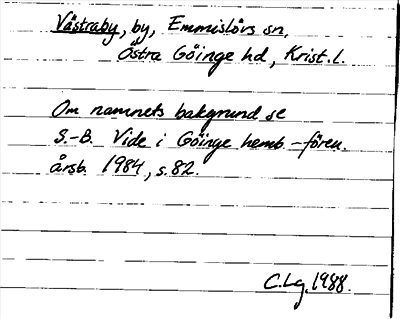 Västraby, by, Emmislövs sn,
Östra Göinge hd, Krist. l.
Om namnets bakgrund se
S.-B. Vide i Göinge hemb.-fören.
årsb. 1984, s. 82.
C.Lg. 1988.